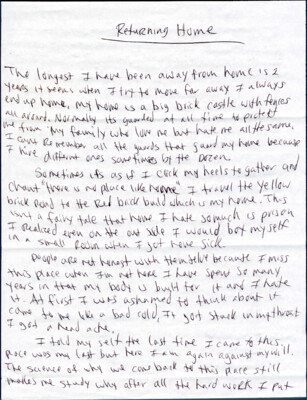 Returning Home
The longest I have been away from home is 2
years it seems when I try to move far away I always
end up home, my home is a big brick castle with fences
all around. Normally its guarded at all time to protect
me from my family who love me but hate me all the same.
I can't Remember all the guards that guard my home because
I hire different ones sometimes by the dozen.
Sometimes its as if I click my heels to gather and
chant "there is no place like home" I travel the yellow
brick Road to the Red brick build which is my home. This
isn't a fairy tale that home I hate so much is prison
I Realized even on the out side I would box my self
in a small Room when I got home sick.
People are not honest with themselve because I miss
this place when I'm not here I have spent so many
years in that my body is built for it and I hate
it. At first I was ashamed to think about it
came to me like a bad cold, It got stuck in my throat
I got a head ache.
I told my self the last time I came to this
place was my last but here I am again against my will.
The science of why we come back to this place still
makes me study why after all the hard work I put